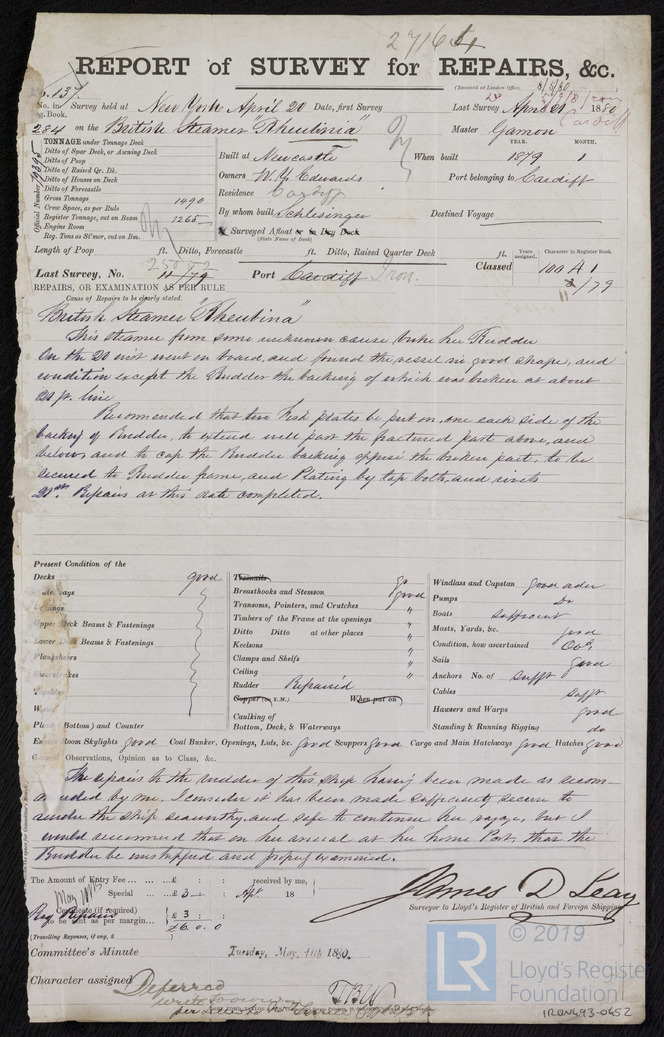 27164
REPORT of SURVEY for REPAIRS, &c.
(Received at London Office,
No. in Survey held at New York April 20 Date, first Survey Last Survey April 21 1880
Reg. Book.
234 on the British Steamer "Rheubinia" Master Gamon
TONNAGE under Tonnage Deck
Ditto of Spar Deck, or Awning Deck
Ditto of Poop
Ditto of Raised Qr. Dk.
Ditto of Houses on Deck
Ditto of Forecastle
Gross Tonnage 1490
Crew Space, as per Rule
Register Tonnage, cut on Beam 1265
Engine Room
Reg. Tons as St'mer, cut on Bm.
Official Number
Built at Newcastle When built 1879 1
YEAR. MONTH.
Owners W. H. Edwards Port belonging to Cardiff
Residence Cardiff
By whom built Schlesinger Destined Voyage
If Surveyed Afloat or in Dry Dock
(State Name of Dock)
Length of Poop ft. Ditto, Forecastle ft. Ditto, Raised Quarter Deck ft.
Years assigned. Character in Register Book.
Last Survey, No. 11/79 Port Cardiff Iron. Classed 100 A 1
/79
REPAIRS, OR EXAMINATION AS PER RULE
Cause of Repairs to be clearly stated.
British Steamer "Rheubina"
This steamer from some unknown cause broke her Rudder
On the 20 inst went on board, and found the vessel in good shape, and
condition except the Rudder the backing of which was broken at about
20 ft. line
Recommended that two Fish plates be put on, one each side of the
backing of Rudder, to extend well past the fractured part above, and
below, and to cap the Rudder backing opposite the broken part, to be
secured to Rudder frame, and Plating by tap bolts and rivets
Repairs at this date completed.
Present Condition of the
Decks good
Upper Deck Beams & Fastenings "
Lower Deck Beams & Fastenings
Planksheers
Plank (Bottom) and Counter
Treenails
Breasthooks and Stemson good
Transoms, Pointers, and Crutches "
Timbers of the Frame at the openings "
Ditto Ditto at other places "
Keelsons "
Clamps and Shelfs "
Ceiling "
Rudder Repaired
Copper (or Y.M.) When put on
Caulking of
Bottom, Deck, & Waterways
Windlass and Capstan good order
Pumps Do
Boats sufficient
Masts, Yards, &c. good
Condition, how ascertained
Sails good
Anchors No. of sufft
Cables sufft
Hawsers and Warps good
Standing & Running Rigging do
Engine Room Skylights good Coal Bunker, Openings, Lids, &c. good Scuppers good Cargo and Main Hatchways good Hatches good
General Observations, Opinion as to Class, &c.
The repairs to the rudder of this ship having been made as recom-
mended by me. I consider it has been made sufficiently secure to
render the ship seaworthy, and safe to continue her voyage, but I
would recommend that on her arrival at her home Port, that the
Rudder be unshipped and properly examined.
The Amount of Entry Fee ... ... £ : : received by me,
Special ... ... £ 3 : Apl. 18
Certificate (if required)
to be sent as per margin... £ 3 :
(Travelling Expenses, if any, £ £6. 0. 0
James D Leary
Surveyor to Lloyd's Register of British and Foreign Shipping.
Committee's Minute Tuesday, May, 4th 1880.
Character assigned Deferred
LR
© 2019
Lloyd's Register
Foundation
IRON693-0452